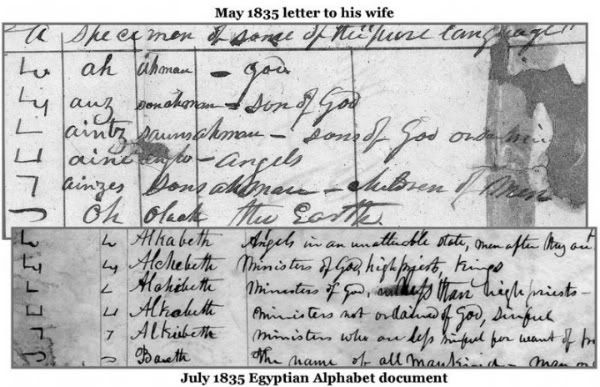 May 1835 letter to his wife
A specimen of some of the "pure language"
ah ahman - god
auz sonahman - son of God
aintz saunsahman - sons of God or
aine anglo - angels
ainzes sonsahman - children of men
oh oleah the Earth
Alkabeth Angels in an unalterable state, men after they are
Alchebeth Ministers of God, high priest, Kings
Alchibeth Ministers of God, less than high priests
Alkabeth ministers not ordained of God, sinful
Alkibeth ministers who are less sinful for want of
Baeth The name of all mankind - man or
July 1835 Egyptian Alphabet document